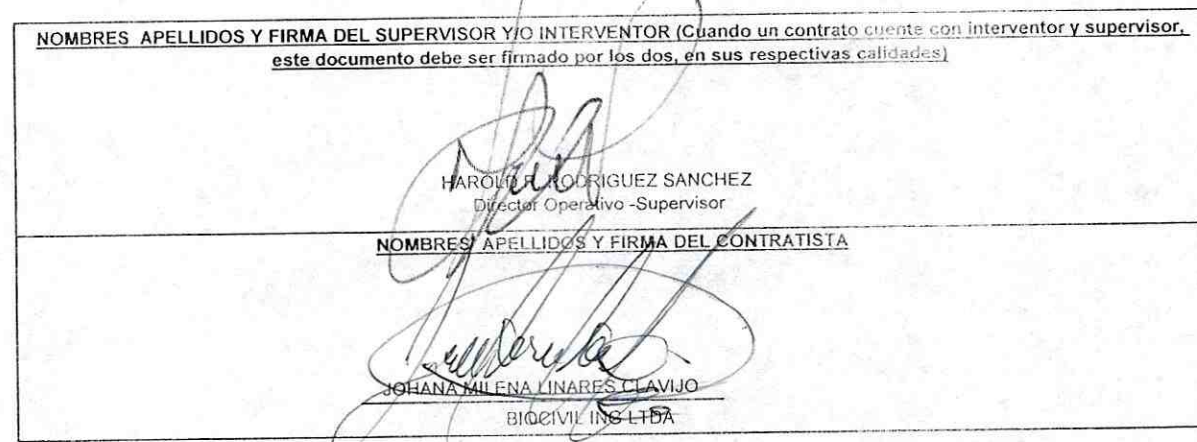 NOMBRES APELLIDOS Y FIRMA DEL SUPERVISOR Y/O INTERVENTOR (Cuando un contrato cuente con interventor y supervisor,
este documento debe ser firmado por los dos, en sus respectivas calidades)
HAROLD R. RODRIGUEZ SANCHEZ
Director Operativo -Supervisor
NOMBRES APELLIDOS Y FIRMA DEL CONTRATISTA
JOHANA MILENA LINARES CLAVIJO
BIOCIVIL ING LTDA